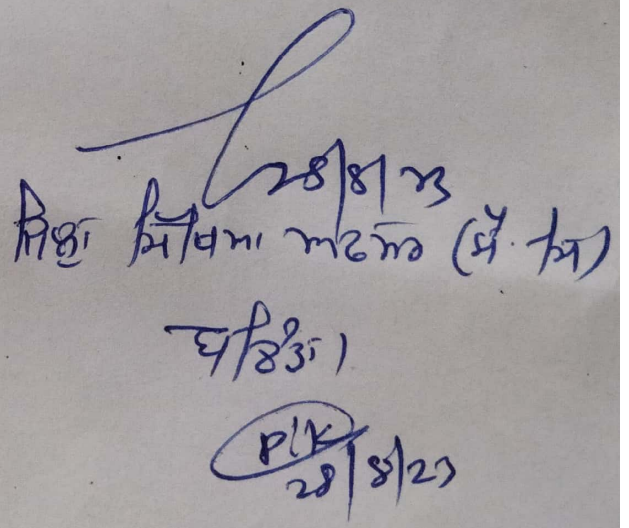 28/8/23
ਜਿਲ੍ਹਾ ਸਿੱਖਿਆ ਅਫਸਰ (ਸੈ. ਸਿ)
28/8/23